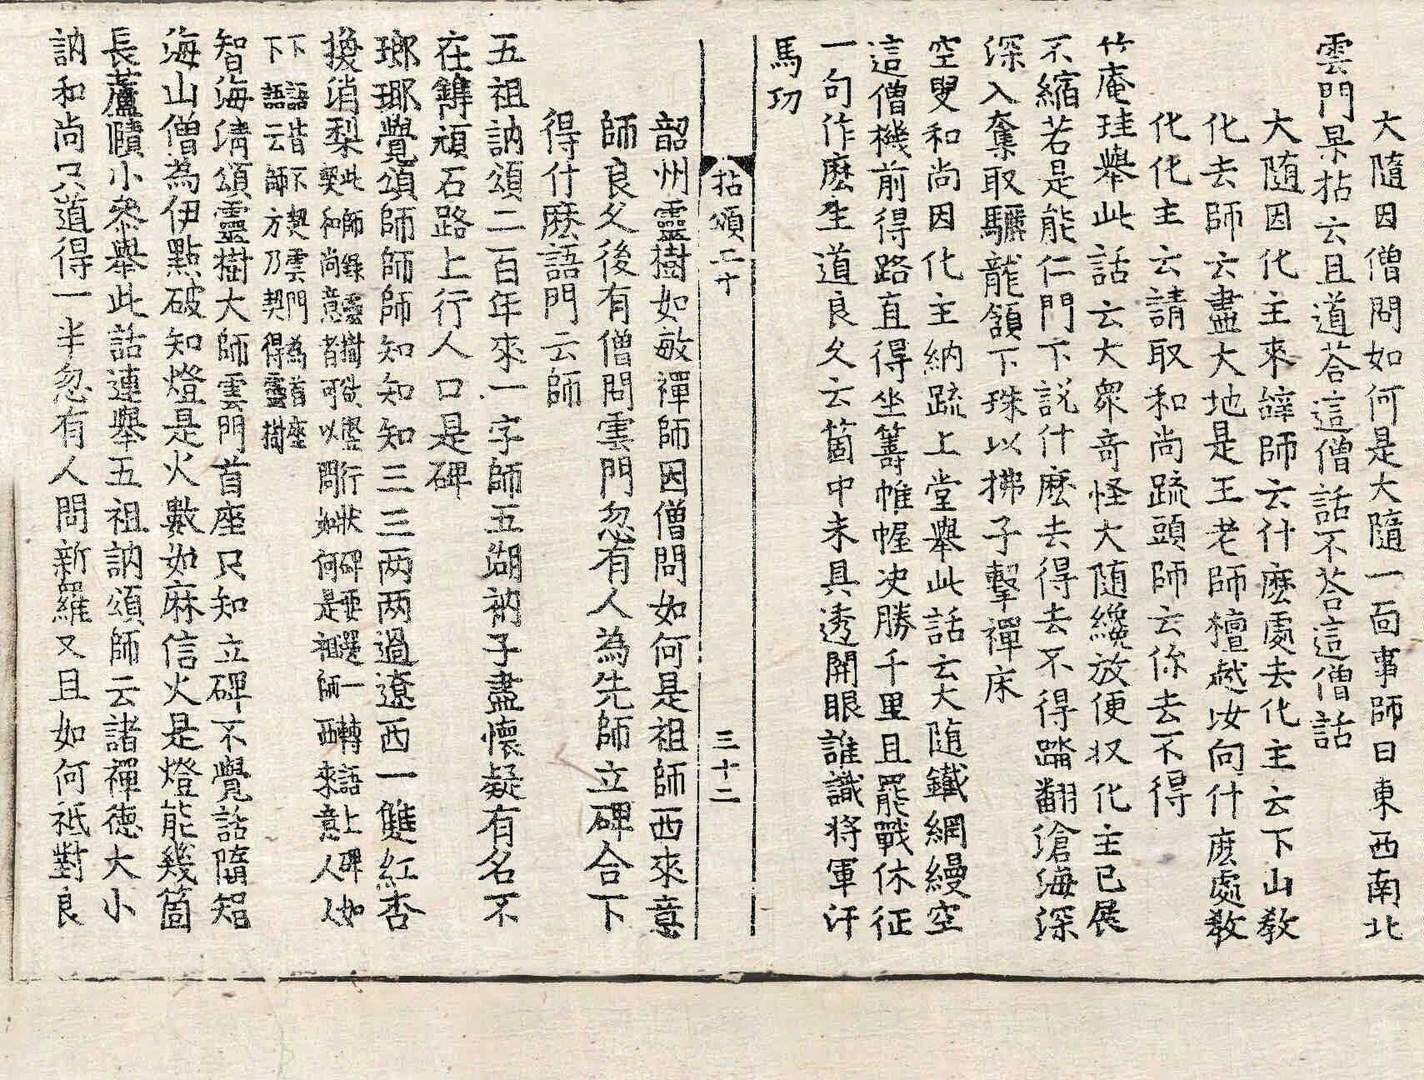 大隨因僧問如何是大隨一面事師曰東西南北
雲門杲拈云且道荅這僧話不荅這僧話
大隨因化主來辝師云什麽處去化主云下山敎
化去師云盡大地是王老師檀越汝向什麽處敎
化化主云請取和尚䟽頭師云你去不得
竹庵珪舉此話云大衆奇怪大隨纔放便収化主已展
不縮若是能仁門下説什麽去得去不得踏翻滄海深
深入奪取驪龍頷下珠以拂子擊禪床
空叟和尚因化主納䟽上堂舉此話云大随鐵網縵空
這僧機前得路直得坐籌帷幄决勝千里且罷戰休征
一句作麽生道良久云箇中未具透關眼誰識將軍汗
馬功
拈頌二十 三十二
韶州靈樹如敏禪師因僧問如何是祖師西來意
師良久後有僧問雲門忽有人為先師立碑合下
得什麽語門云師
五祖訥頌二百年來一字師五湖衲子盡懷疑有名不
在鐫頑石路上行人口是碑
瑯琊覺頌師師師知知知三三两两過遼西一雙紅杏
換消梨此師錄靈樹旣歿行狀碑要選一轉語上碑如
契和尚意者可以問如何是祖師西來意人人
下語皆不契雲門為首座
下語云師方乃契得靈樹
智海淸頌靈樹大師雲門首座只知立碑不覺話隨智
海山僧為伊點破知燈是火數如麻信火是燈能幾箇
長蘆賾小參舉此話連舉五祖訥頌師云諸禪德大小
訥和尚只道得一半忽有人問新羅又且如何祗對良